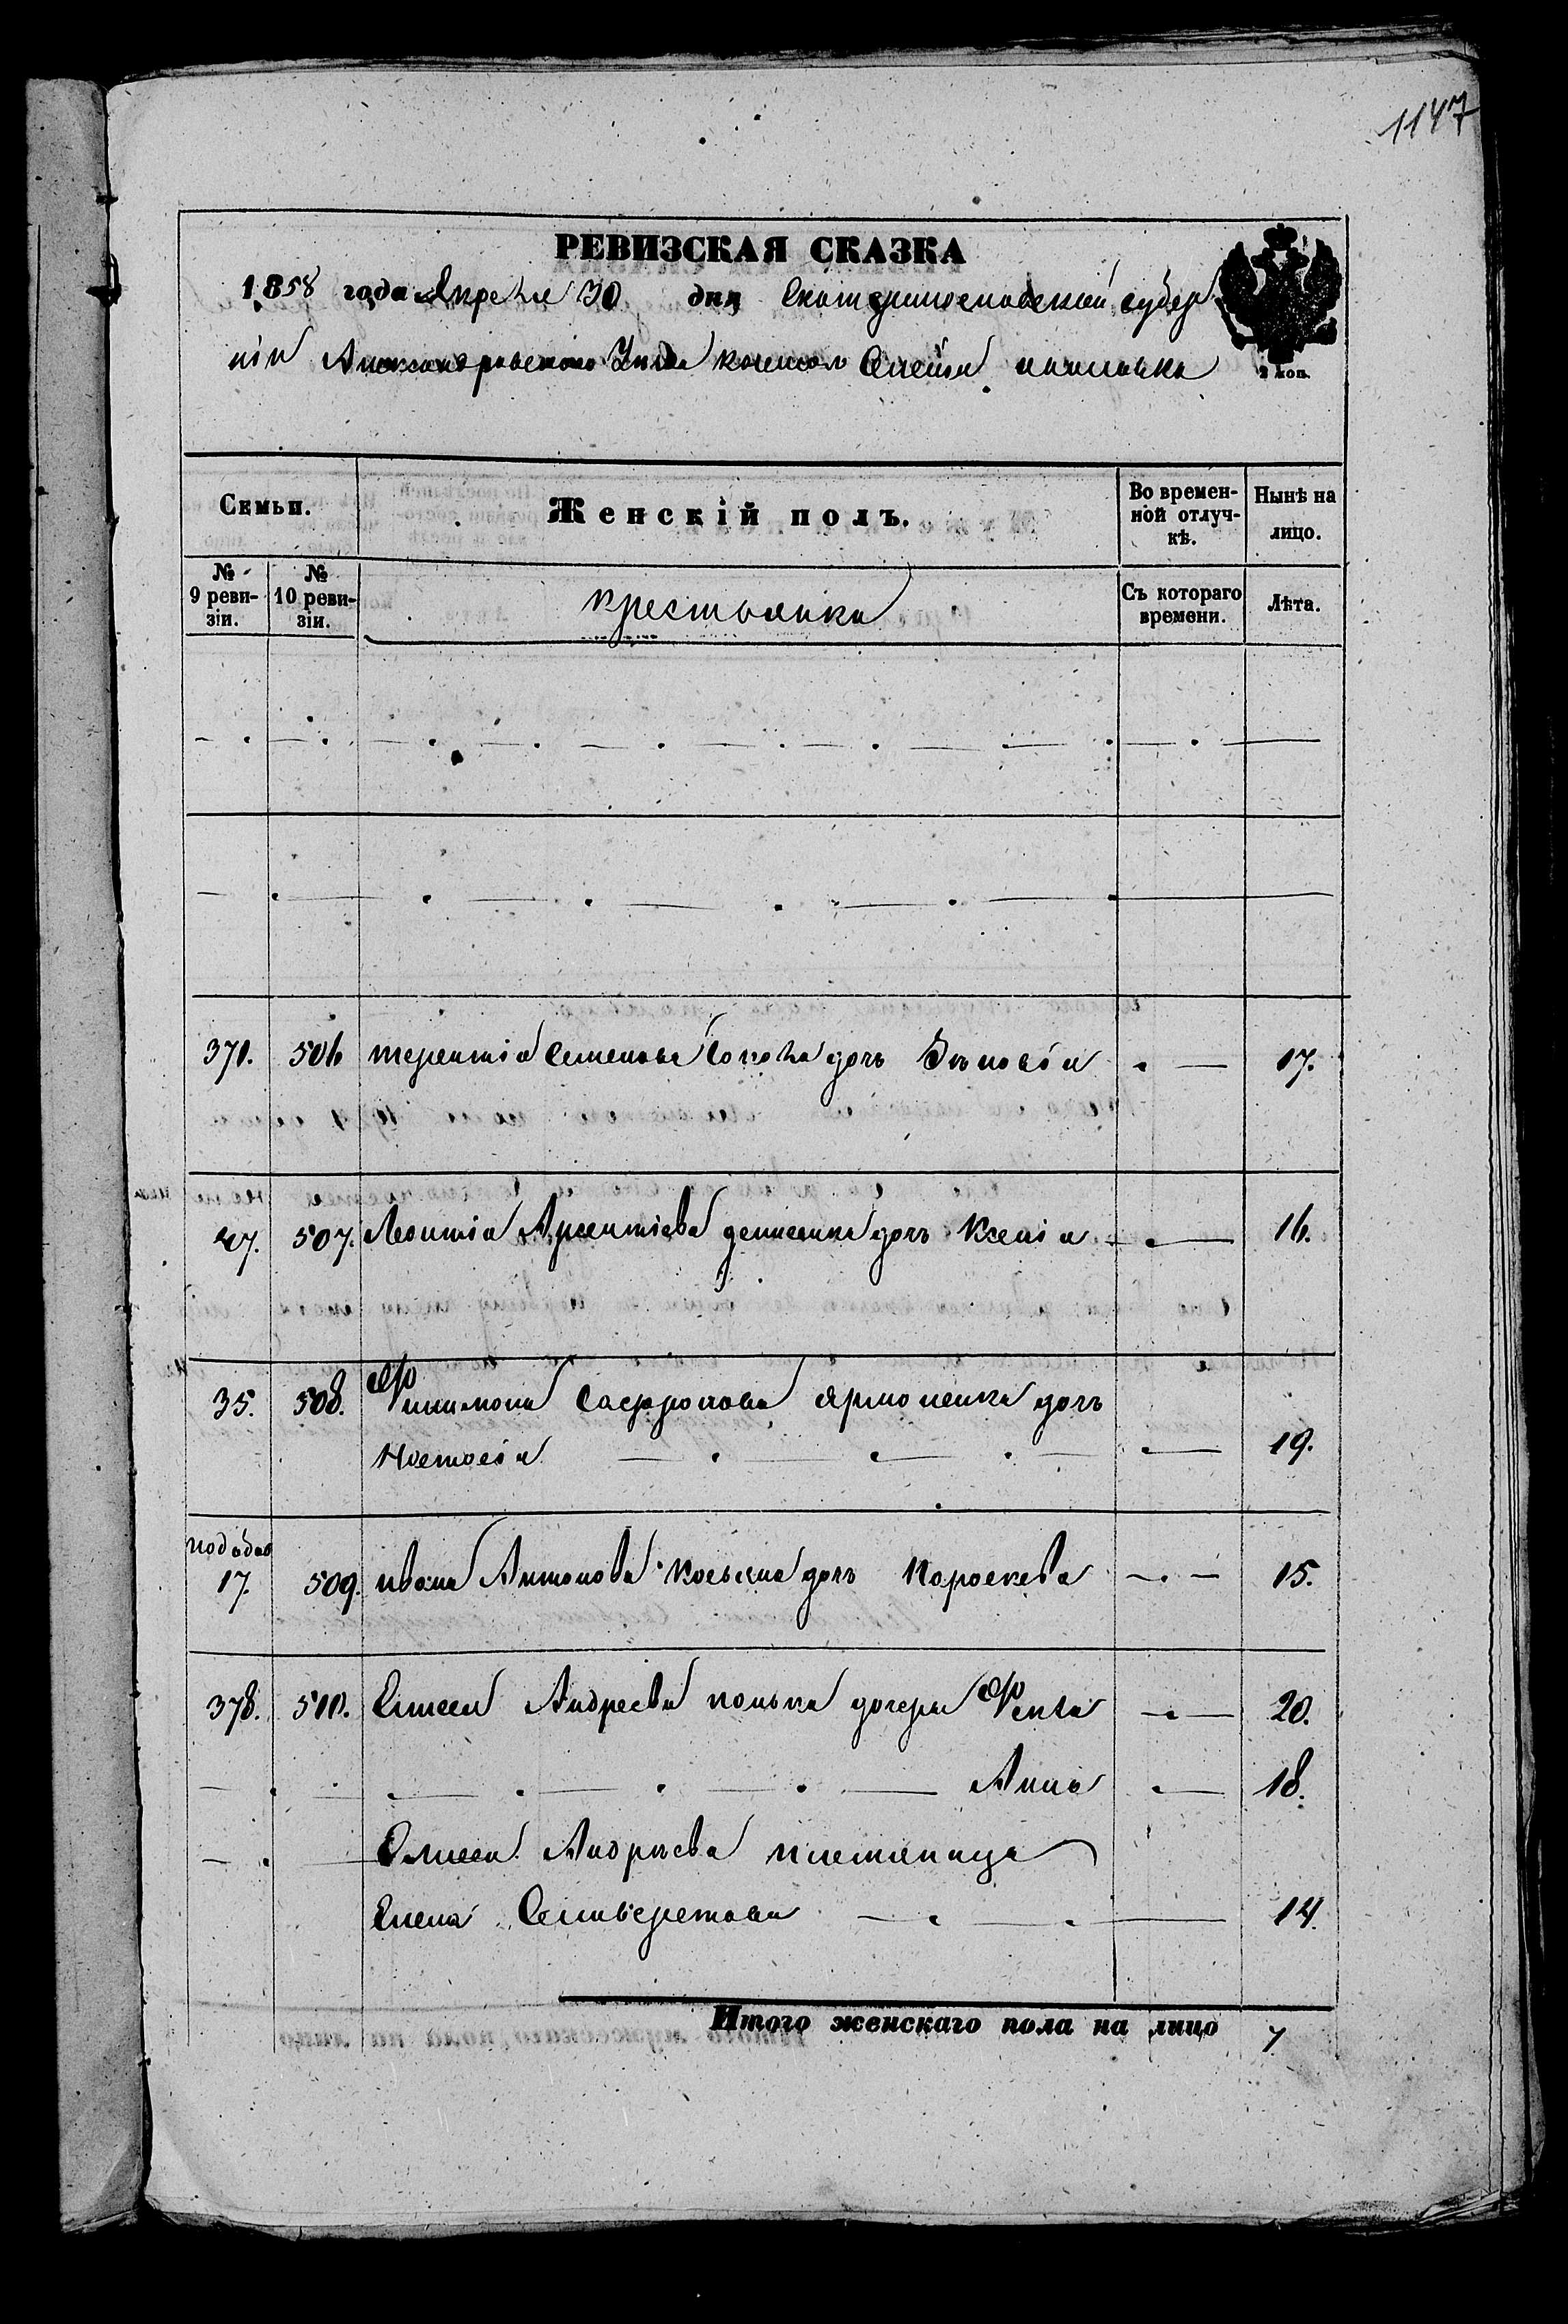 1147
РЕВИЗСКАЯ СКАЗКА
1858 года Апреля 30 дня Екатеринославской губер
ніи Александровского Уезда
2 коп.
Семьи.
Женскій полъ.
Во времен-
ной отлуч-
кѣ.
Нынѣ на
лицо.
№
9 реви-
зіи.
№
10 реви-
зіи.
крестьянки
Съ котораго
времени.
Лѣта.
506 терентія Семенова дочь Зѣновія 17.
507. Леонтія Арсентіева денисенка дочь Ксенія 16.
35. 508. Филимона Сафронова Ярмоленка дочь
Настасія 19.
17. 509. ивана Антонова дочь Параскева 15.
378. 510. Елисея Андреева дочери Фекла 20.
Анна 18.
Елисея Андрѣева племяница
Елена Селиверстова 14.
Итого женскаго пола на лицо 7